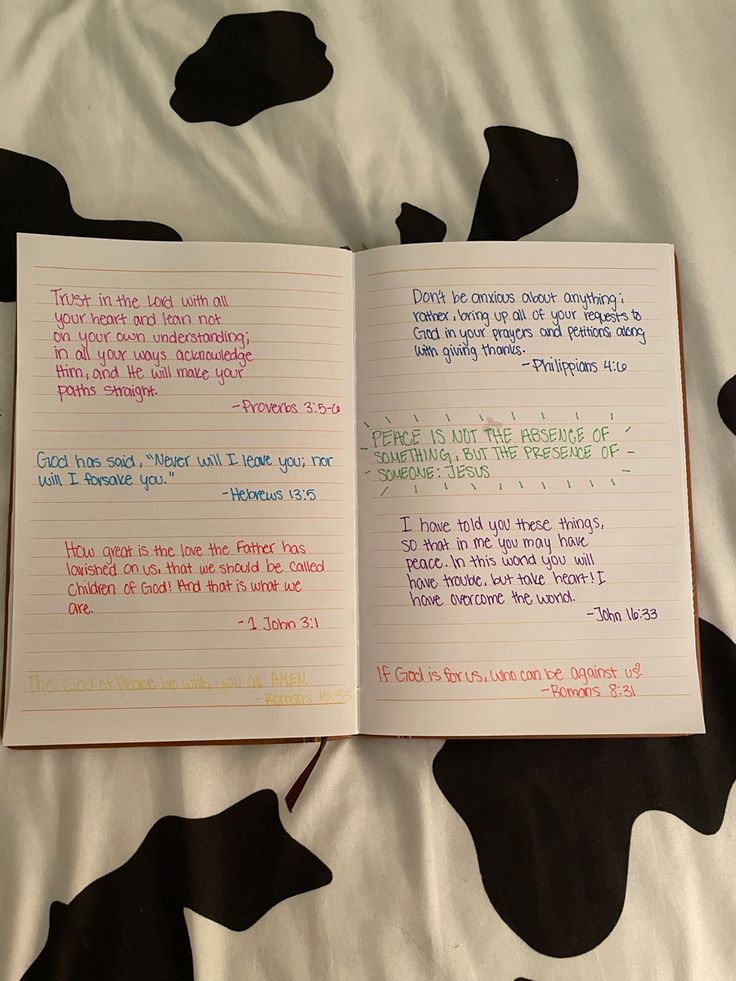 Trust in the Lord with all
your heart and lean not
on your own understanding;
in all your ways acknowledge
Him, and He will make your
paths straight.
-Proverbs 3:5-6
God has said, "Never will I leave you; nor
will I forsake you."
-Hebrews 13:5
How great is the love the Father has
lavished on us, that we should be called
Children of God! And that is what we
are.
-1 John 3:1
The God of Peace be with you all AMEN.
-Romans 15:33
Don't be anxious about anything;
rather, bring up all of your requests to
God in your prayers and petitions, along
with giving thanks.
-Philippians 4:6
PEACE IS NOT THE ABSENCE OF
SOMETHING, BUT THE PRESENCE OF
SOMEONE: JESUS
I have told you these things,
so that in me you may have
peace. In this world you will
have trouble, but take heart! I
have overcome the world.
-John 16:33
If God is for us, who can be against us?
-Romans 8:31